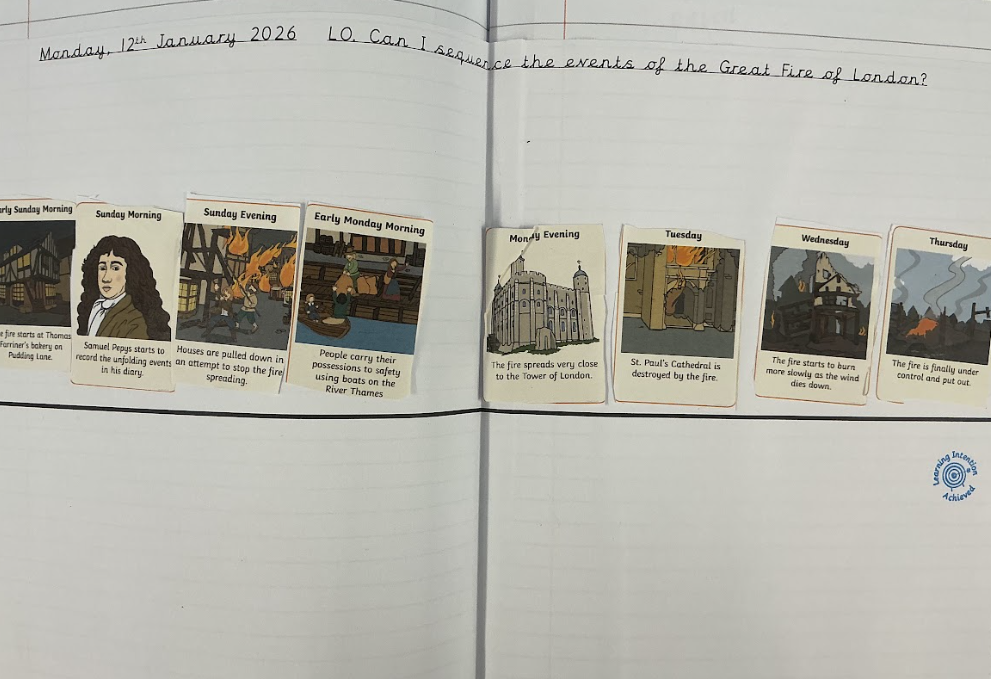 Monday, 12th January 2026 LO. Can I sequence the events of the Great Fire of London?
Sunday Morning
Samuel Pepys starts to
record the unfolding events
in his diary.
Sunday Evening
Houses are pulled down in
an attempt to stop the fire
spreading.
Early Monday Morning
People carry their
possessions to safety
using boats on the
River Thames
Monday Evening
The fire spreads very close
to the Tower of London.
Tuesday
St. Paul's Cathedral is
destroyed by the fire.
Wednesday
The fire starts to burn
more slowly as the wind
dies down.
Thursday
The fire is finally under
control and put out.
Sunday Morning
fire starts at Thomas
Farriner's bakery on
Pudding Lane.
Learning Intention
Achieved